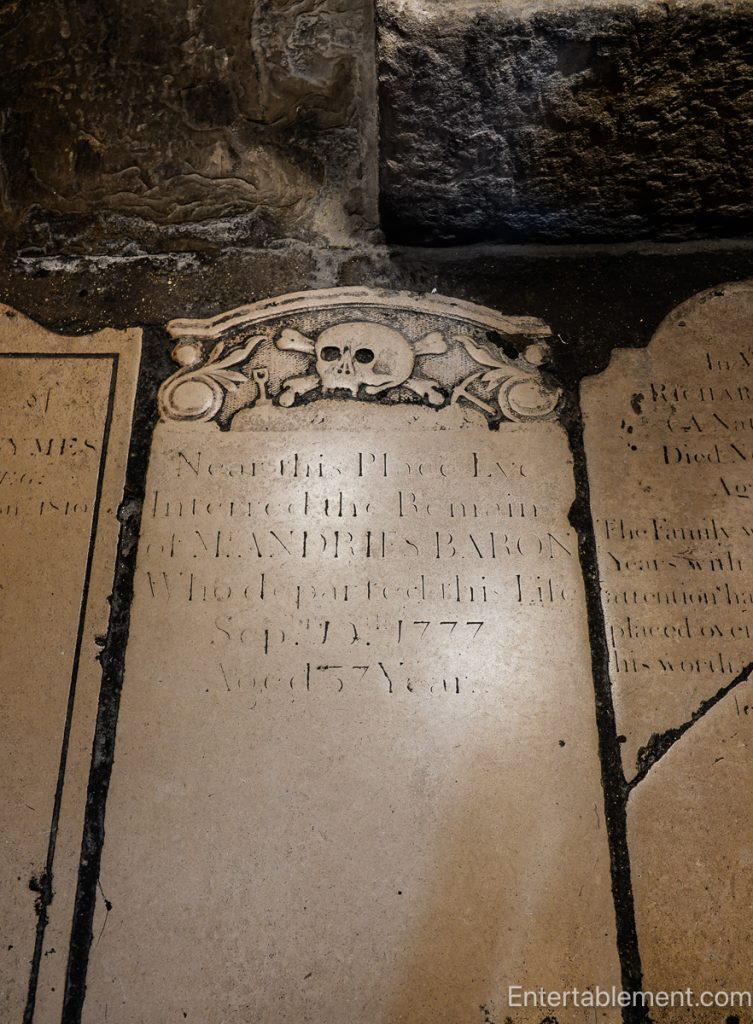 of
YMES
1810
Near this Place Lye
Interred the Remain
of Mr. ANDRIES BARON
Who departed this Life
Sepr. 1777
Aged 57 Year
In
RICHAR
CA Nat
Died No
Ag
The Family w
Years with
attention ha
placed over
his worth
Entertablement.com